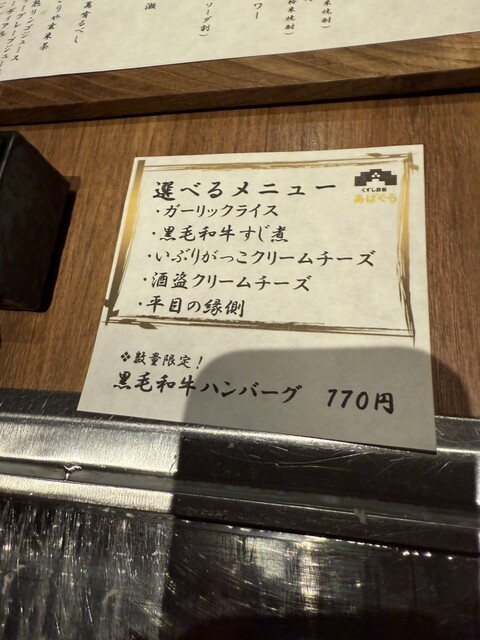 選べるメニュー
・ガーリックライス
・黒毛和牛すじ煮
・いぶりがっこクリームチーズ
・酒盗クリームチーズ
・平目の縁側
くずし鉄板
あばぐら
❖数量限定！
黒毛和牛ハンバーグ 770円
ソーダ割）
ワー